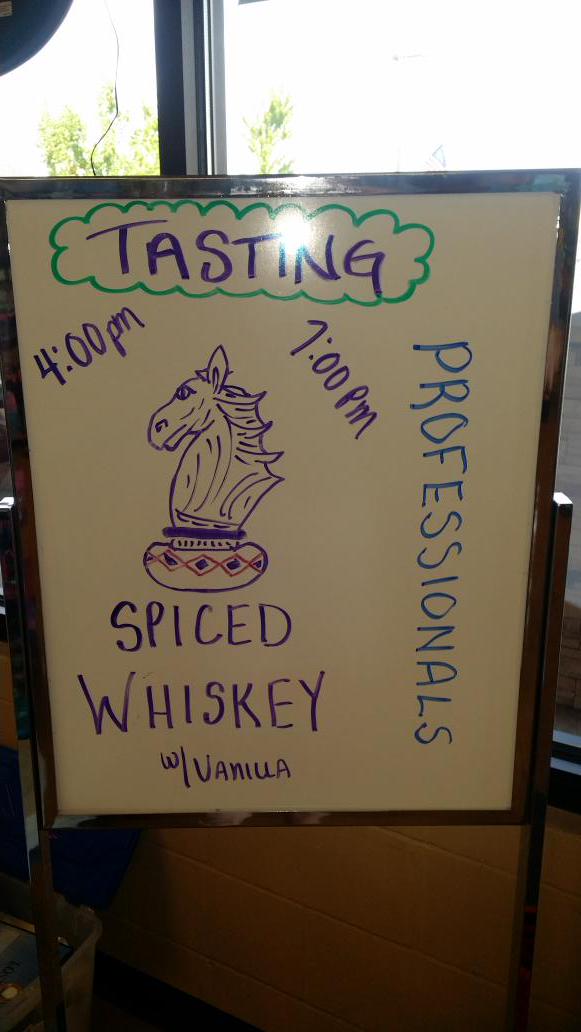 TASTING
4:00pm
7:00pm
PROFESSIONALS
SPICED
WHISKEY
w/VANILLA